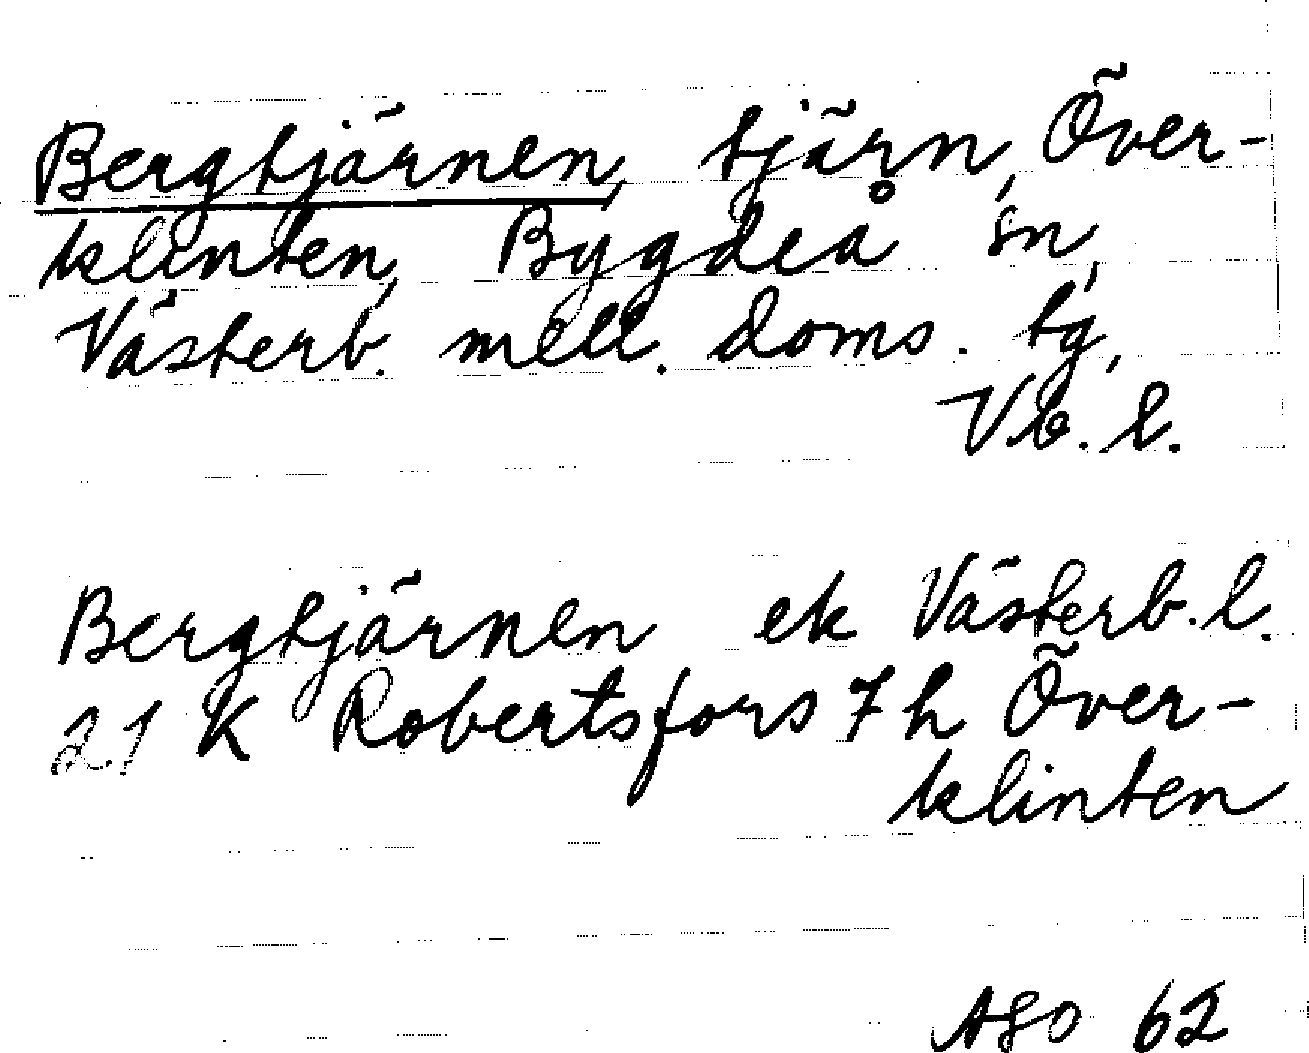 Bergtjärnen, tjärn, Över-
klinten, Bygdeå sn,
Västerb. mell. doms. tg,
Vb. l.
Bergtjärnen ek Västerb. l.
21 K Robertsfors 7 h Över-
klinten
ASO 62